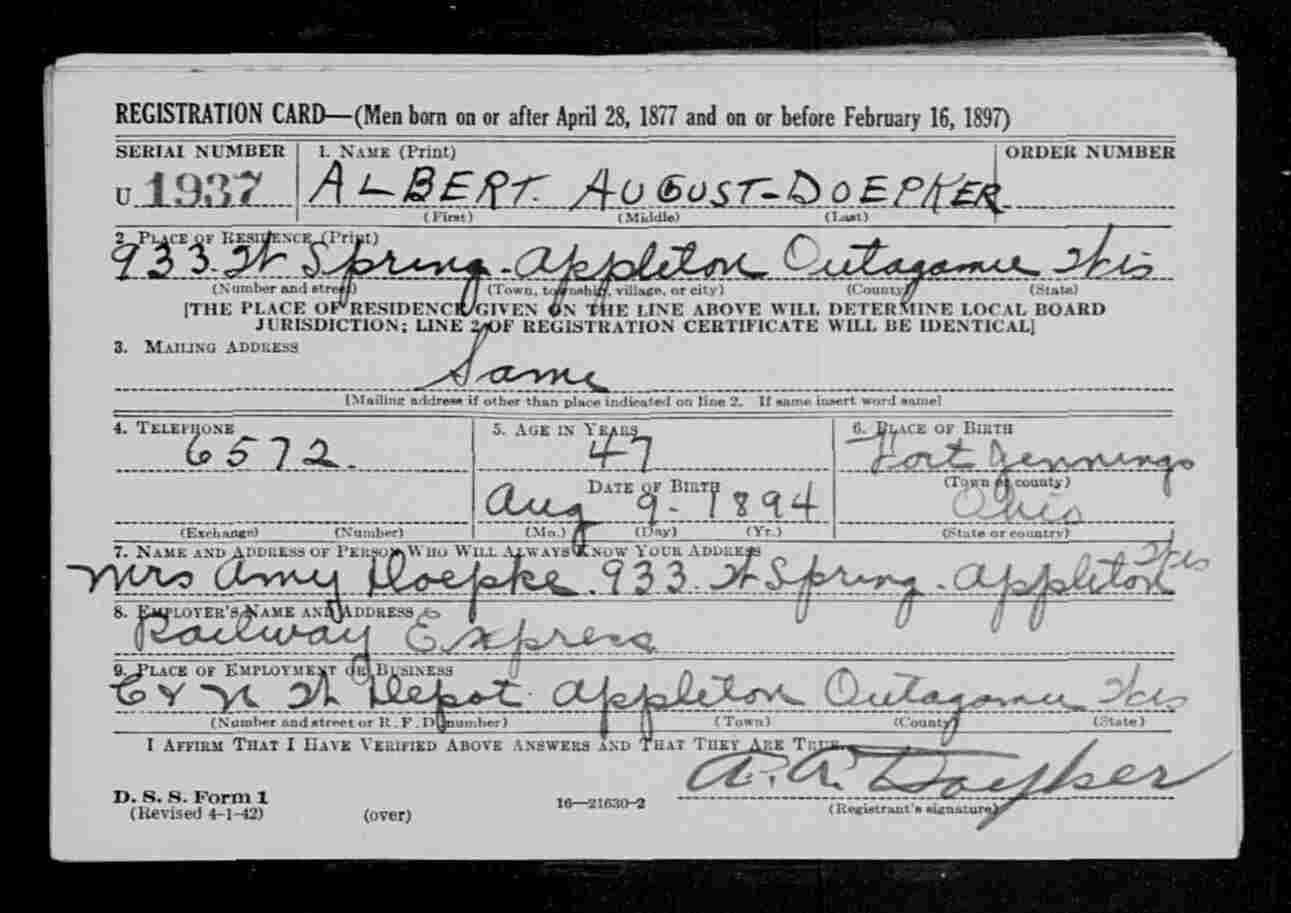 REGISTRATION CARD—(Men born on or after April 28, 1877 and on or before February 16, 1897)
SERIAL NUMBER 1. NAME (Print) ORDER NUMBER
U 1937 ALBERT. AUGUST-DOEPKER
(First) (Middle) (Last)
2. PLACE OF RESIDENCE (Print)
933. W Spring - Appleton Outagamie Wis
(Number and street) (Town, township, village, or city) (County) (State)
[THE PLACE OF RESIDENCE GIVEN ON THE LINE ABOVE WILL DETERMINE LOCAL BOARD
JURISDICTION; LINE 2 OF REGISTRATION CERTIFICATE WILL BE IDENTICAL]
3. MAILING ADDRESS
Same
[Mailing address if other than place indicated on line 2. If same insert word same]
4. TELEPHONE 5. AGE IN YEARS 6. PLACE OF BIRTH
6572. 47 Fort Jennings
DATE OF BIRTH (Town or county)
Aug 9 - 1894 Ohio
(Exchange) (Number) (Mo.) (Day) (Yr.) (State or country)
7. NAME AND ADDRESS OF PERSON WHO WILL ALWAYS KNOW YOUR ADDRESS
Mrs Amy Doepke. 933. W Spring - Appleton Wis
8. EMPLOYER'S NAME AND ADDRESS
Railway Express
9. PLACE OF EMPLOYMENT OR BUSINESS
C & N W Depot. Appleton Outagamie Wis
(Number and street or R. F. D. number) (Town) (County) (State)
I AFFIRM THAT I HAVE VERIFIED ABOVE ANSWERS AND THAT THEY ARE TRUE.
A. A. Doepker
D. S. S. Form 1
(Revised 4-1-42) (over) 16—21630-2 (Registrant's signature)